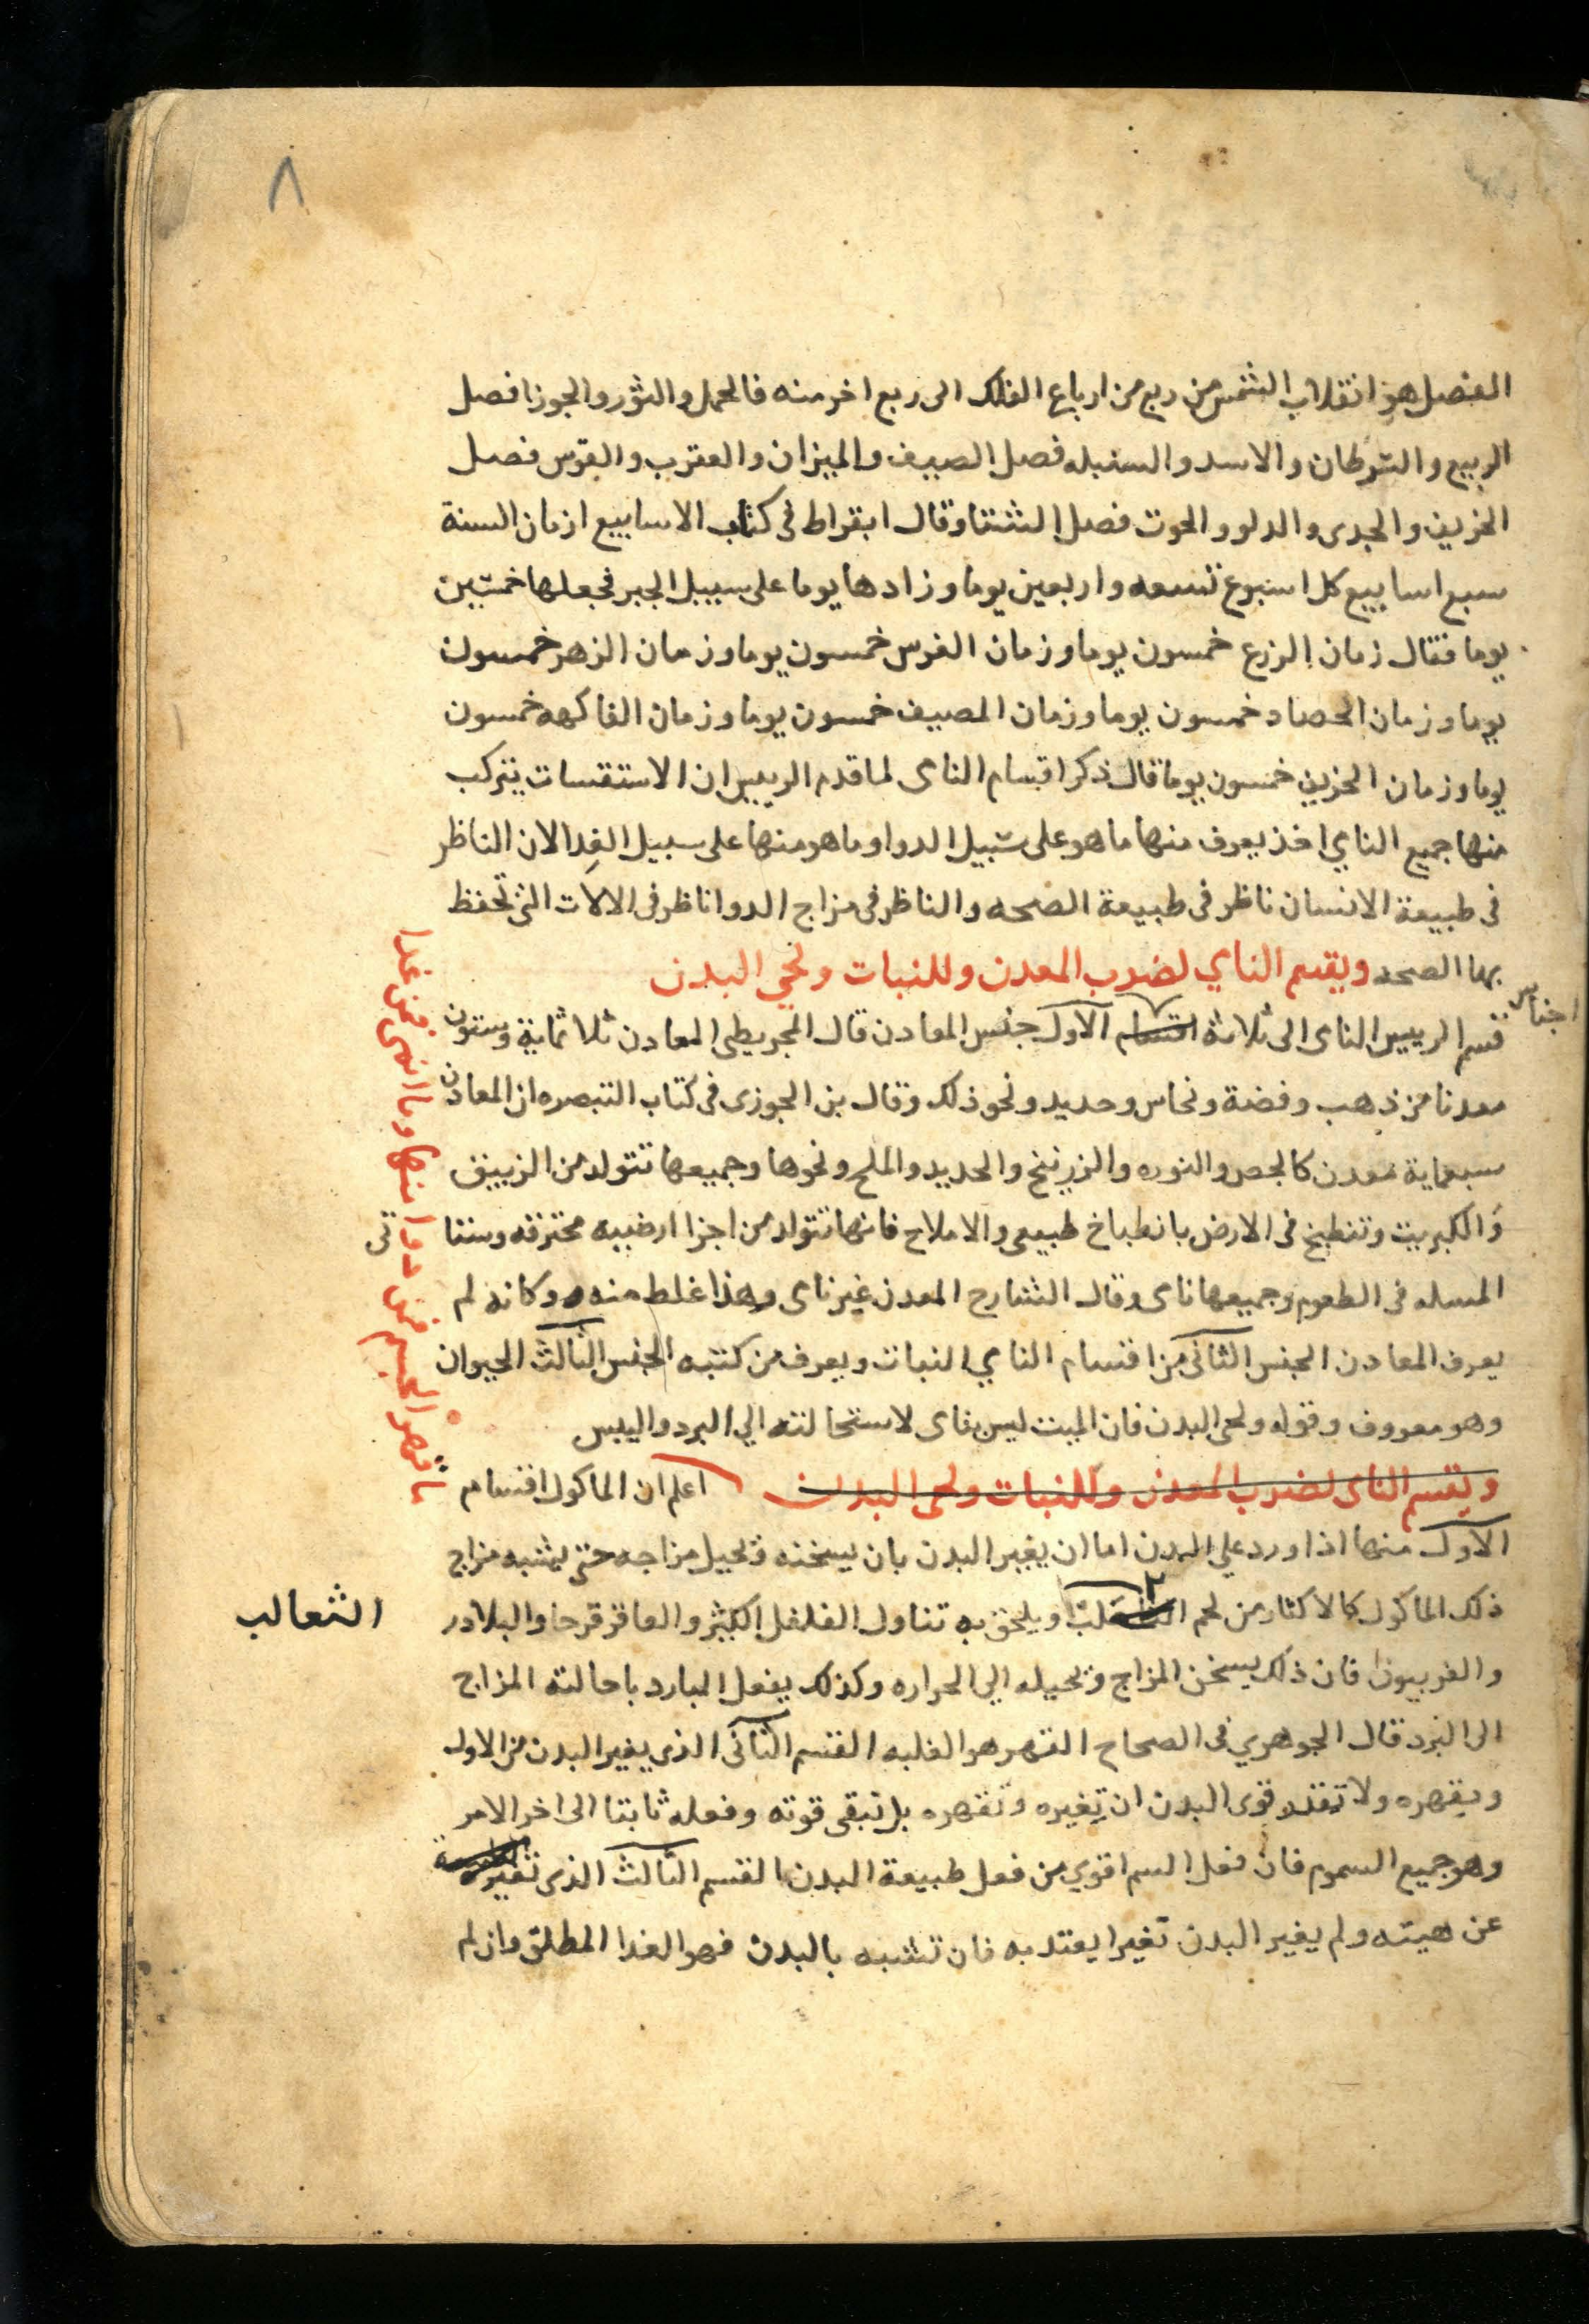 ٨
الفصل هو انقلاب الشمس من ربع من ارباع الفلك الى ربع اخر منه فالحمل والثور والجوزا فصل
الربيع والسرطان والاسد والسنبله فصل الصيف والميزان والعقرب والقوس فصل
الخريف والجدى والدلو والحوت فصل الشتا وقال ابقراط فى كتاب الاسابيع ازمان السنة
سبع اسابيع كل اسبوع تسعه واربعين يوما وزادها يوما على سبيل الجبر فجعلها خمسين
يوما فقال زمان الزرع خمسون يوما وزمان الغرس خمسون يوما وزمان الزهر خمسون
يوما وزمان الحصاد خمسون يوما وزمان المصيف خمسون يوما وزمان الفاكهه خمسون
يوما وزمان الخريف خمسون يوما قال ذكر اقسام الناى لما قدم الرييس ان الاستقسات يتركب
منها جميع الناي اخذ يعرف منها ما هو على سبيل الدوا وما هو منها على سبيل الغدا لان الناظر
فى طبيعة الانسان ناظر فى طبيعة الصحه والناظر فى مزاج الدوا ناظر فى الالات التى تحفظ
بها الصحه ويقسم الناي لضرب المعدن وللنبات ولحي البدن
قسم الرييس الناى الى ثلاثة اقسام الاول جنس المعادن قال المجريطى المعادن ثلاثماية وستون
اجناس
معدنا من ذهب وفضة ونحاس وحديد ونحو ذلك وقال بن الجوزى فى كتاب التبصره ان المعادن
سبعماية معدن كالجص والنوره والزرنيخ والحديد والملح ونحوها وجميعها تتولد من الزيبق
والكبريت وتنطبخ فى الارض بانطباخ طبيعى والاملاح فانها تتولد من اجزا ارضييه محترقه وستا تى
المسله فى الطعوم وجميعها ناى وقال الشارح المعدن غير ناى وهذا غلط منه وكانه لم
يعرف المعادن الجنس الثانى من اقسام الناي النبات ويعرف من كتبه الجنس الثالث الحيوان
وهو معروف وقوله ولحى البدن فان الميت ليس بناى لاستحالته الي البرد واليبس
ويقسم الناى لضرب المعدن وللنبات ولحى البدن اعلم ان الماكول اقسام
الاول منها اذا ورد على البدن اما ان يغير البدن بان يسخنه ويحيل مزاجه حتى يشبه مزاج
ذلك الماكول كالاكثار من لحم ويلحق به تناول الفلفل الكثير والعاقر قرحا والبلادر
الثعالب
والفربيون فان ذلك يسخن المزاج ويحيله الي الحراره وكذلك يفعل البارد باحالته المزاج
الى البرد قال الجوهري فى الصحاح القهر هو الغلبه القسم الثانى الذي يغير البدن من الاول
ويقهره ولا تقدر قوى البدن ان تغيره وتقهره بل تبقى قوته وفعله ثابتا الى اخر الامر
وهو جميع السموم فان فعل السم اقوي من فعل طبيعة البدن القسم الثالث الذى تغيره
عن هيته ولم يغير البدن تغيرا يعتد به فان تشبه بالبدن فهو الغدا المطلق وان لم
ما قهر الجسم فمن دوا منها وما انمى فمن غدا